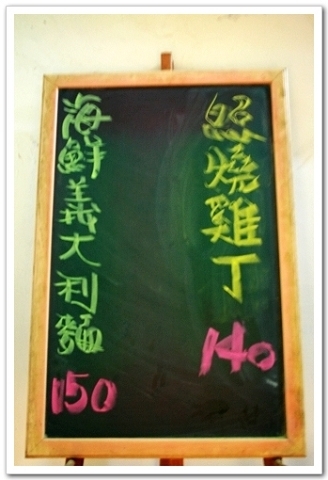 照燒雞丁
140
海鮮義大利麵
150